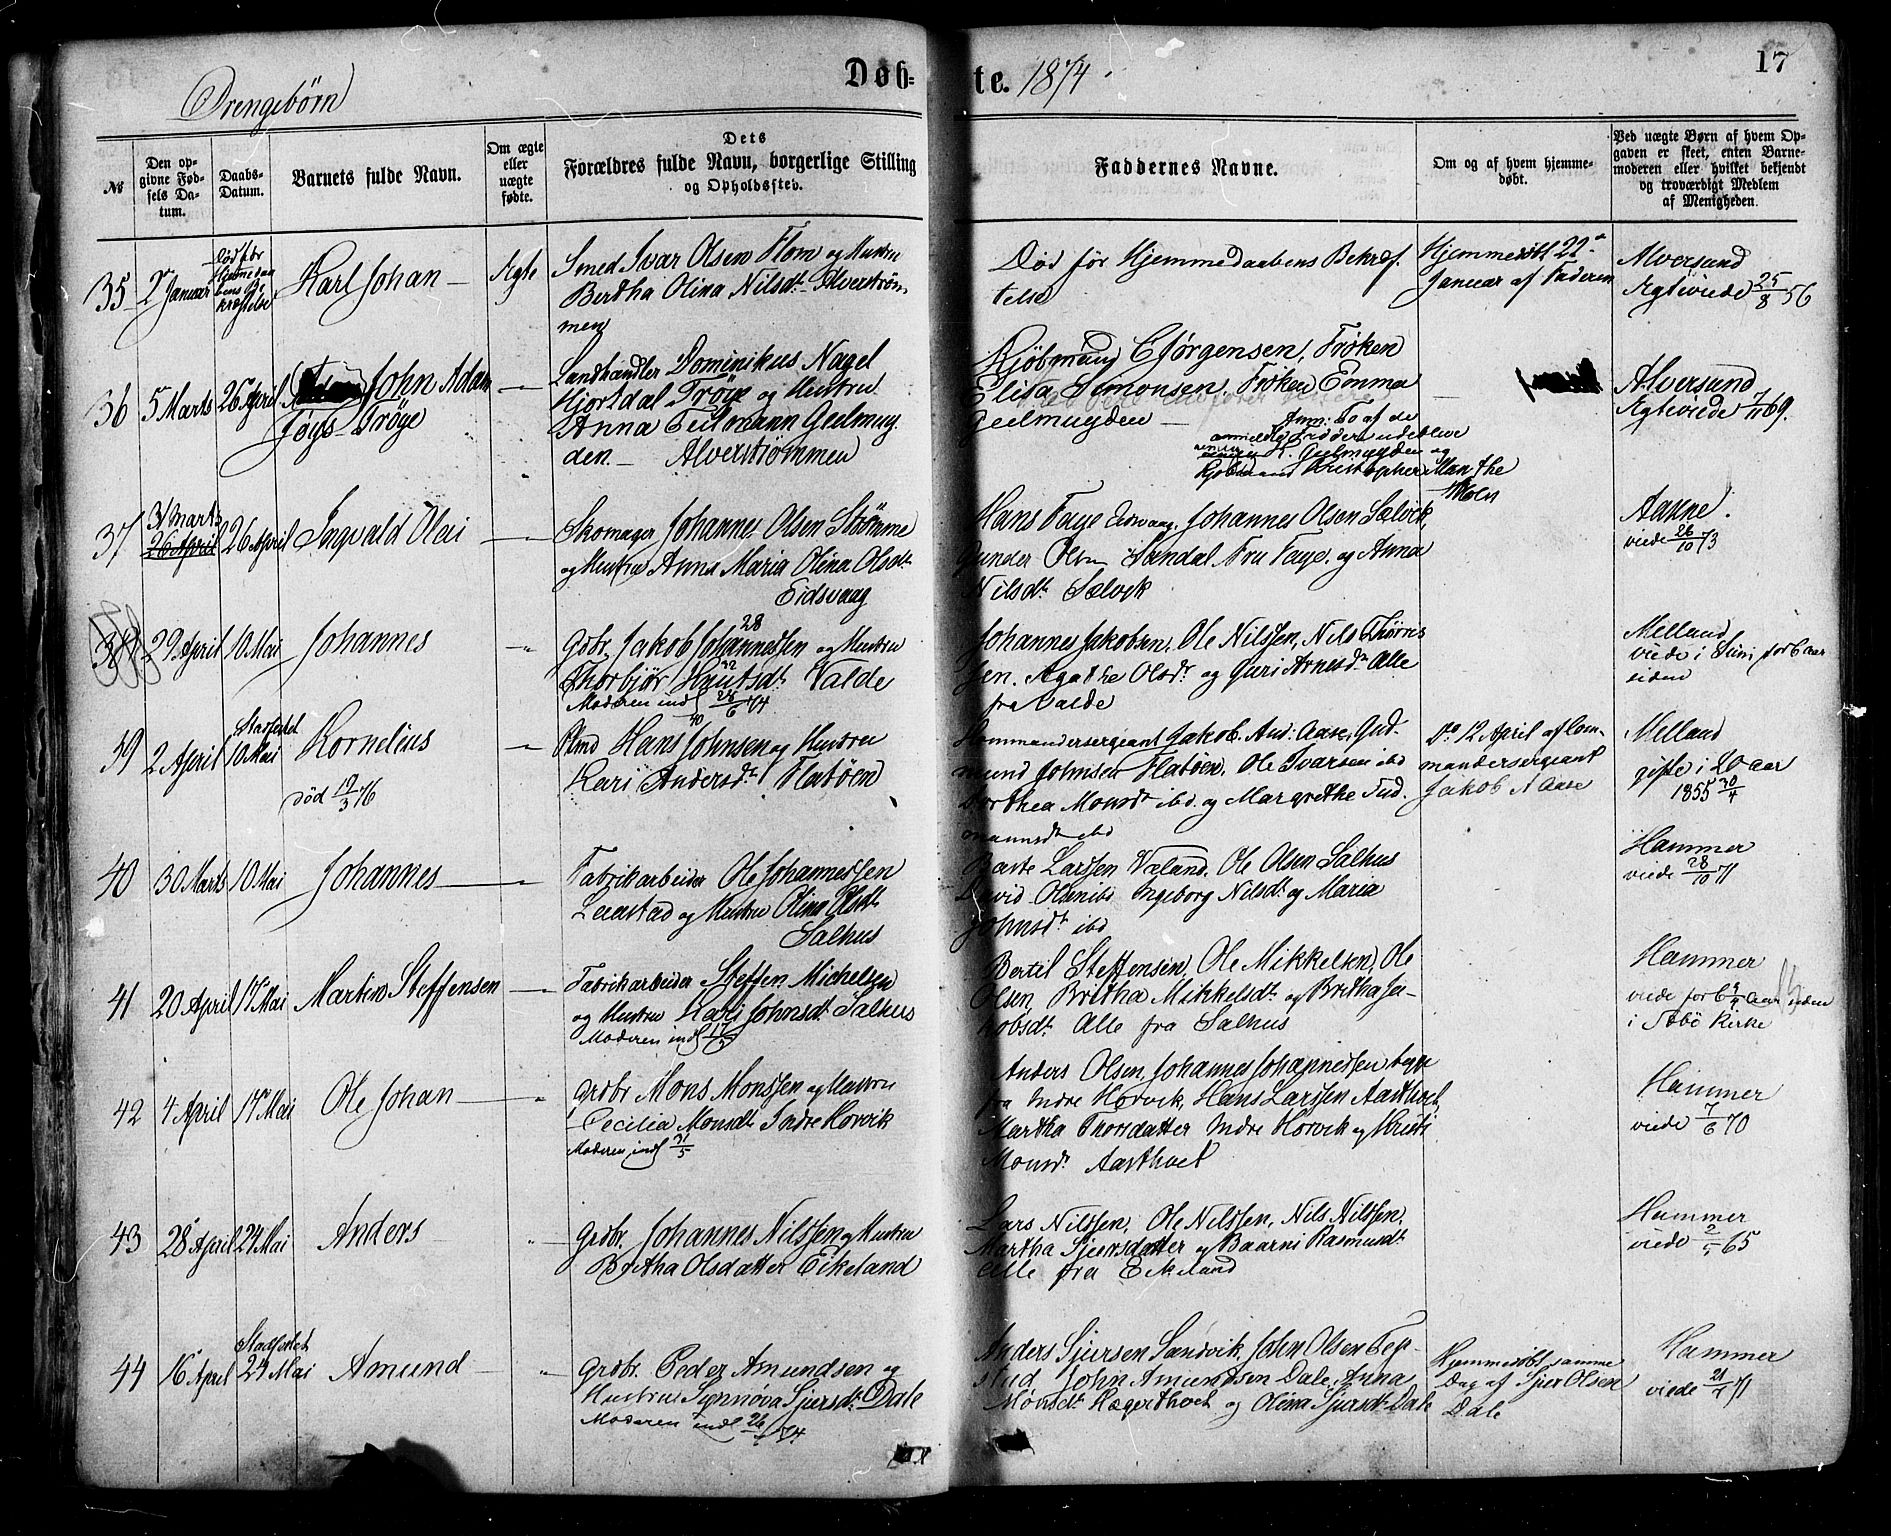 Drengebörn
Døb-
te. 1874
17
№
Den op-
givne Fød-
sels Da-
tum.
Daabs-
Datum.
Barnets fulde Navn.
Om ægte
eller
uægte
fødte.
Dets
Forældres fulde Navn, borgerlige Stilling
og Opholdssted.
Faddernes Navne.
Om og af hvem hjemme-
døbt.
Ved uægte Børn af hvem Op-
gaven er skeet, enten Barne-
moderen eller hvilket bekjendt
og troværdigt Medlem
af Menigheden.
35
2 Januar
Død før
Hjemmedaa
bens Be-
kræftelse
Karl Johan
Ægte
Smed Ivar Olsen Flom og Hustru
Bertha Olina Nilsdt. Alverström-
men
Død før Hjemmedaabens Bekræf-
telse
Hjemmedöbt 22
Januar af Faderen
Alversund
Ægteviede 25/8 56
36
5 Marts
26 April
John Adam
Joys Tröye
Landhandler Dominikus Nagel
Hjortdal Tröye og Hustru
Anna Teilmann Geelmuy
den. Alverströmmen
Kjöbmand C Jörgensen, Fröken
Elisa Simonsen, Fröken Emma
Geelmuyden
Anm. To af de
anmeldte Faddere udeblive
Geelmuyden og
Kjöbmand Kristopher Manthe
Alversund
Ægteviede 7/11 69.
37
31 Marts
26 April
26 April
Ingvald Olai
Skomager Johannes Olsen Strömme
og Hustru Anna Maria Olina Olsdt
Eidsvaag
Hans Faye Eidsvaag, Johannes Olsen Sælvik,
Gunder Olsen Sandal, Fru Faye, og Anna
Nilsdt. Sælvik
Aasne.
viede 26/10 73
38
29 April
10 Mai
Johannes
Gdbr. Jakob Johannessen og Hustru
28
Thorbjör Knutsdt. Valde
Moderen indl 28/6 74
Johannes Jakobsen, Ole Nilssen, Nils Thörris
sen. Agathe Olsdt og Guri Arnesdt. Alle
fra Valde
Melland
viede i Liim for 6 aar
siden
39
2 April
Stadfæstet
10 Mai
Kornelius
död 19/3 76
40
Plmd Hans Johnsen og Hustru
Kari Andersdt. Flatöen
Kommandersergeant Jakob And: Aase, Gud-
mund Johnsen Flatöen, Ole Ivarsen ibd
Dorthea Monsdt ibd. og Margrethe Gud-
mundsdt ibd
Do 12 April af Com-
mandersergeant
Jakob A Aase
Melland
gifte i 20 aar
1855 30/4
40
30 Marts
10 Mai
Johannes
Fabrikarbeider Ole Johannessen
Leirstad og Hustru Olina Olsdt.
Salhus
Larssen Væland, Ole Olsen Salhus
David Olsen ibd Ingeborg Nilsdt og Maria
Johnsdt ibd
Hammer
viede 28/10 71
41
20 April
17 Mai
Martin Steffensen
Fabrikarbeider Steffen Michelsen
og Hustru Kari Johnsdt. Salhus
Moderen indl 17/5
Bertil Steffensen, Ole Mikkelsen, Ole
Olsen, Britha Mikkelsdt og Britha Ja-
kobsdt. Alle fra Salhus
Hammer
viede for 6 aar siden
i Sæbö Kirke
42
4 April
17 Mai
Ole Johan
Grdbr Mons Monssen og Hustru
Cecilia Monsdt. Indre Horvik
Moderen indl 31/5
Anders Olsen, Johannes Johannessen begge
fra Indre Horvik, Hans Larssen Aasthvet
Martha Thorsdatter Indre Horvik og Kristi
Monsdt Aasthvet
Hammer
viede 7/6 70
43
28 April
24 Mai
Anders
Grdbr Johannes Nilssen og Hustru
Britha Olsdatter Eikeland
Lars Nilssen, Ole Nilssen, Nils Nilssen,
Martha Sjursdatter og Baarni Rasmusdt
Alle fra Eikeland
Hammer
viede 65
44
16 April
Stadfæstet
24 Mai
Amund
Grdbr Peder Amundsen og
Hustru Synnöva Sjursdt. Dale
Moderen indl 26 74
Anders Sjursen Sandvik, John Olsen Teg-
stad John Amundsen Dale, Anna
Monsdt Hægerthvet og Olina Sjursdt Dale
Hjemmedöbt samme
Dag af Sjur Olsen
Dale
Hammer
viede 71